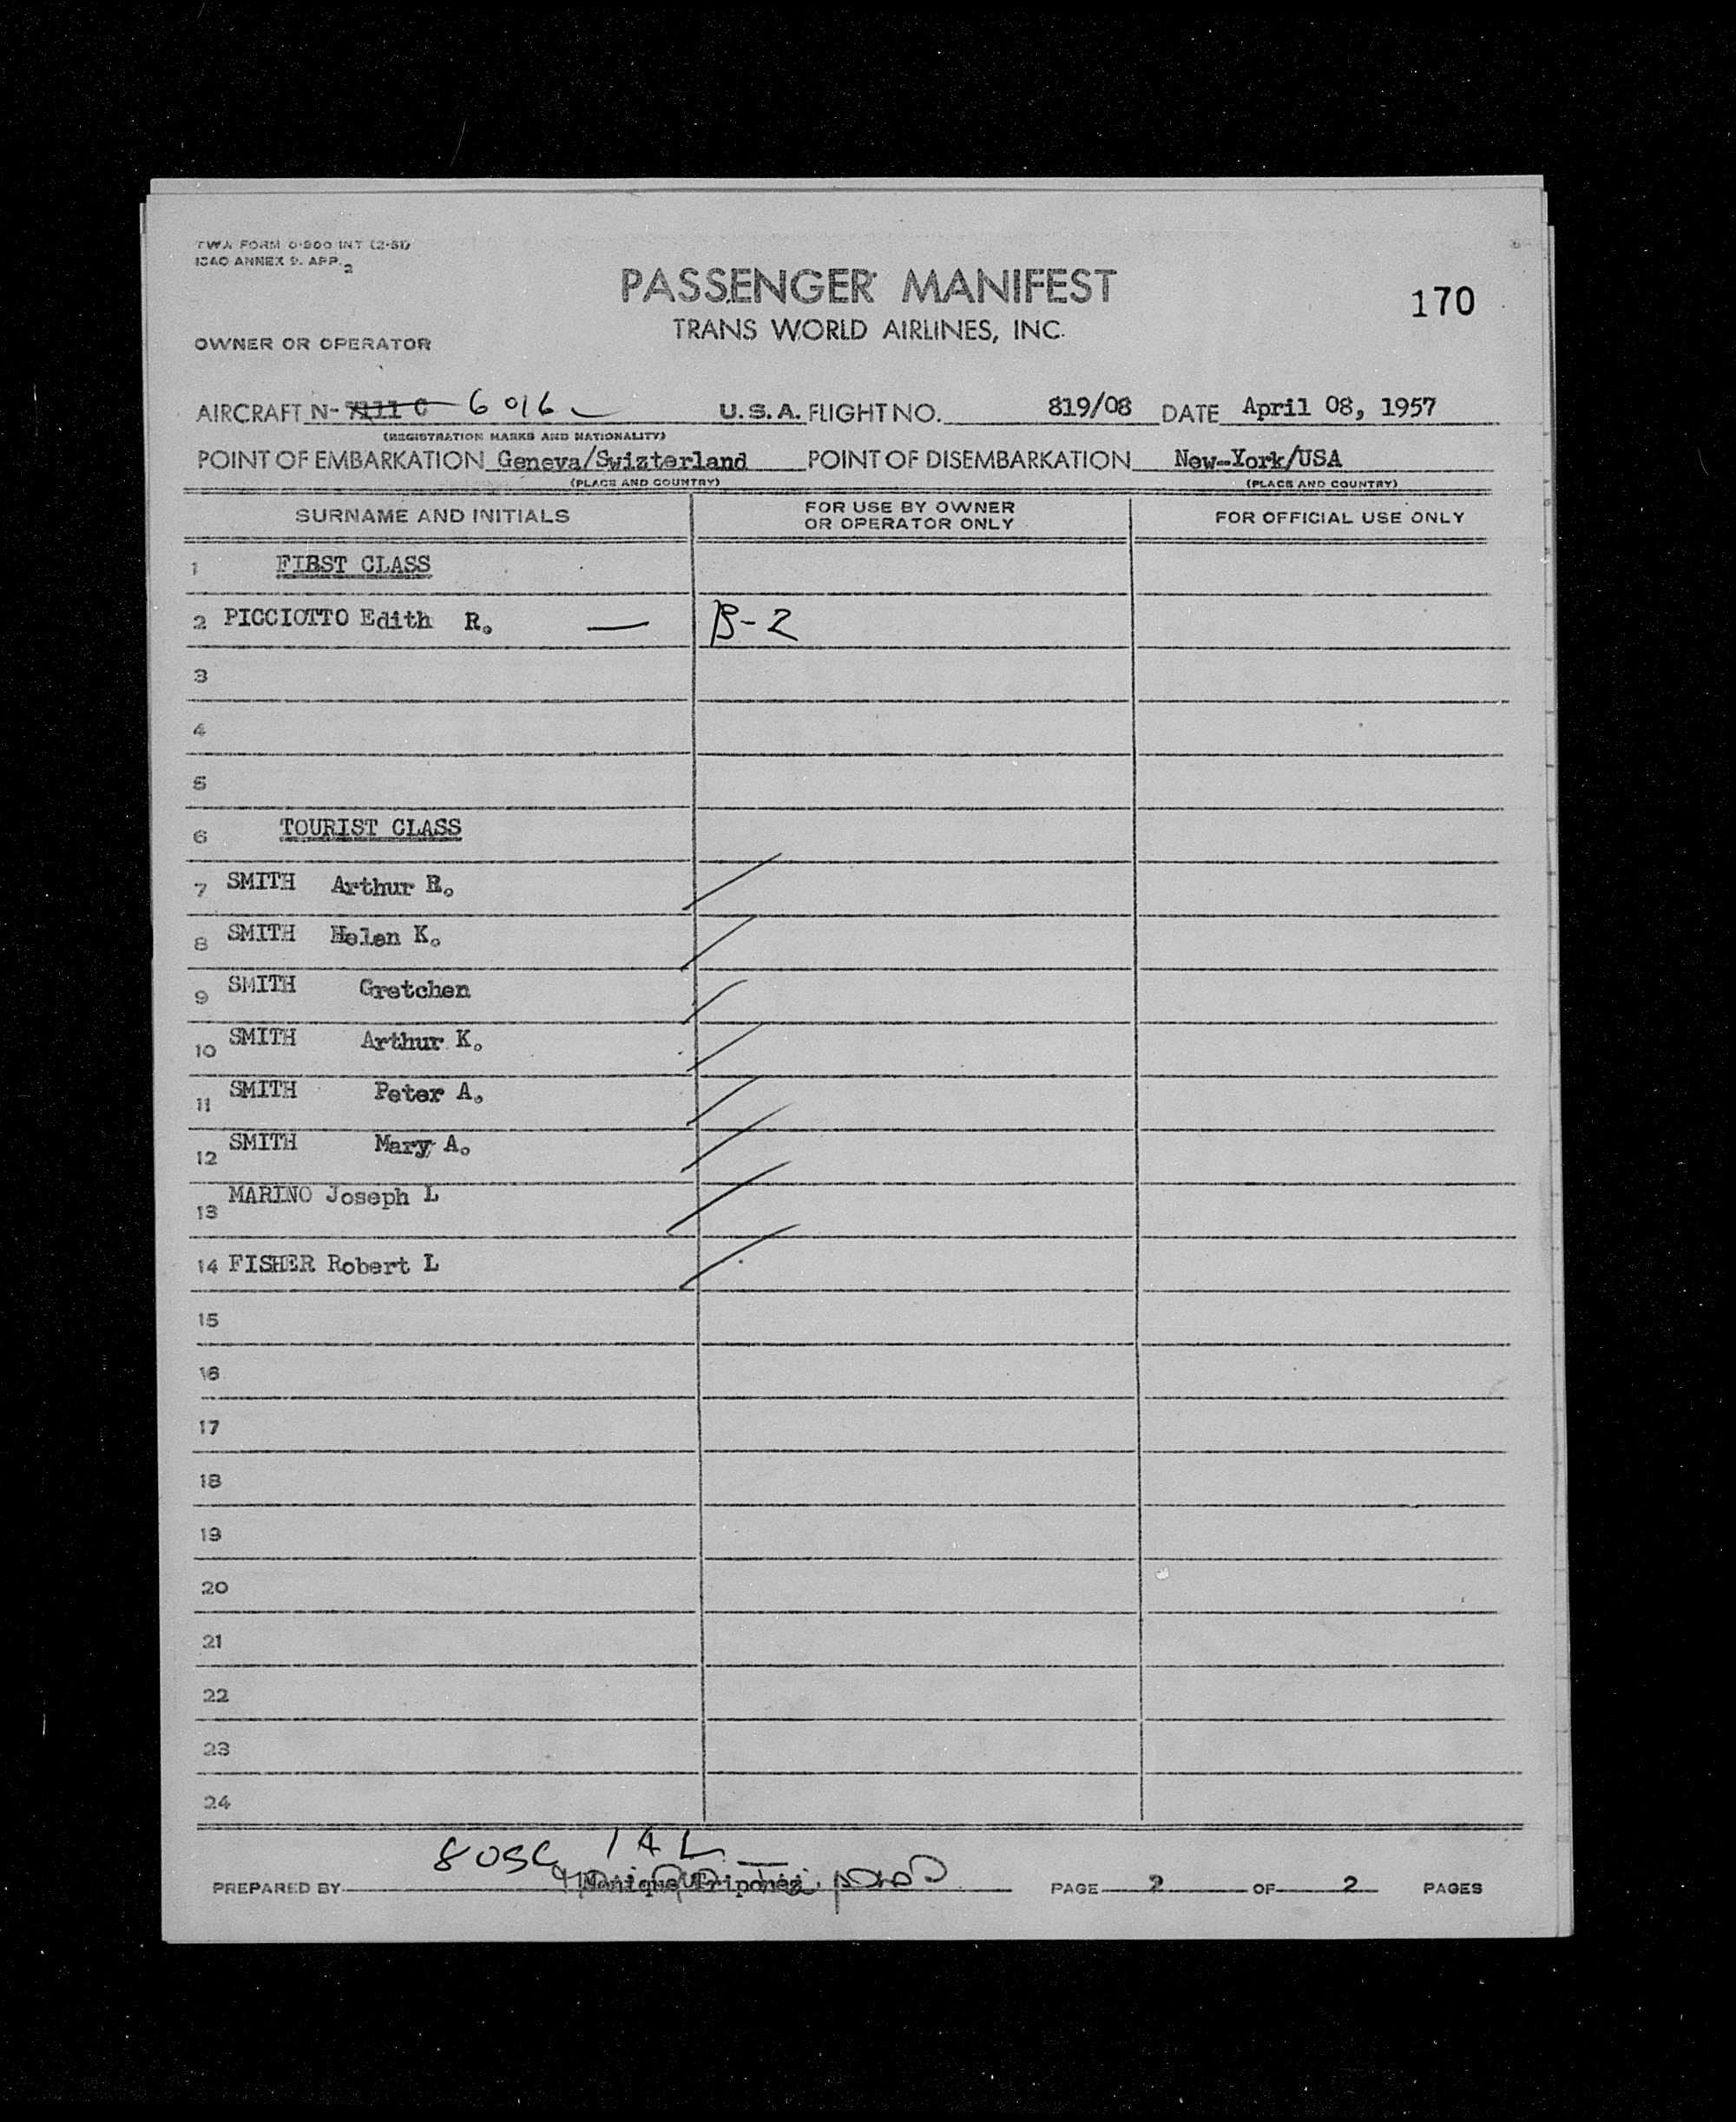 TWA FORM O-800 INT (2-51)
ICAO ANNEX 9. APP. 2
PASSENGER MANIFEST
170
TRANS WORLD AIRLINES, INC.
OWNER OR OPERATOR
AIRCRAFT N- 7111 C 6016 U.S.A. FLIGHT NO. 819/08 DATE April 08, 1957
(REGISTRATION MARKS AND NATIONALITY)
POINT OF EMBARKATION Geneva/Swizterland POINT OF DISEMBARKATION New-York/USA
(PLACE AND COUNTRY) (PLACE AND COUNTRY)
SURNAME AND INITIALS FOR USE BY OWNER OR OPERATOR ONLY FOR OFFICIAL USE ONLY
1 FIRST CLASS
2 PICCIOTTO Edith R. — B-2
3
4
5
6 TOURIST CLASS
7 SMITH Arthur R.
8 SMITH Helen K.
9 SMITH Gretchen
10 SMITH Arthur K.
11 SMITH Peter A.
12 SMITH Mary A.
13 MARINO Joseph L
14 FISHER Robert L
15
16
17
18
19
20
21
22
23
24
PREPARED BY Monique Triponez PAGE 2 OF 2 PAGES